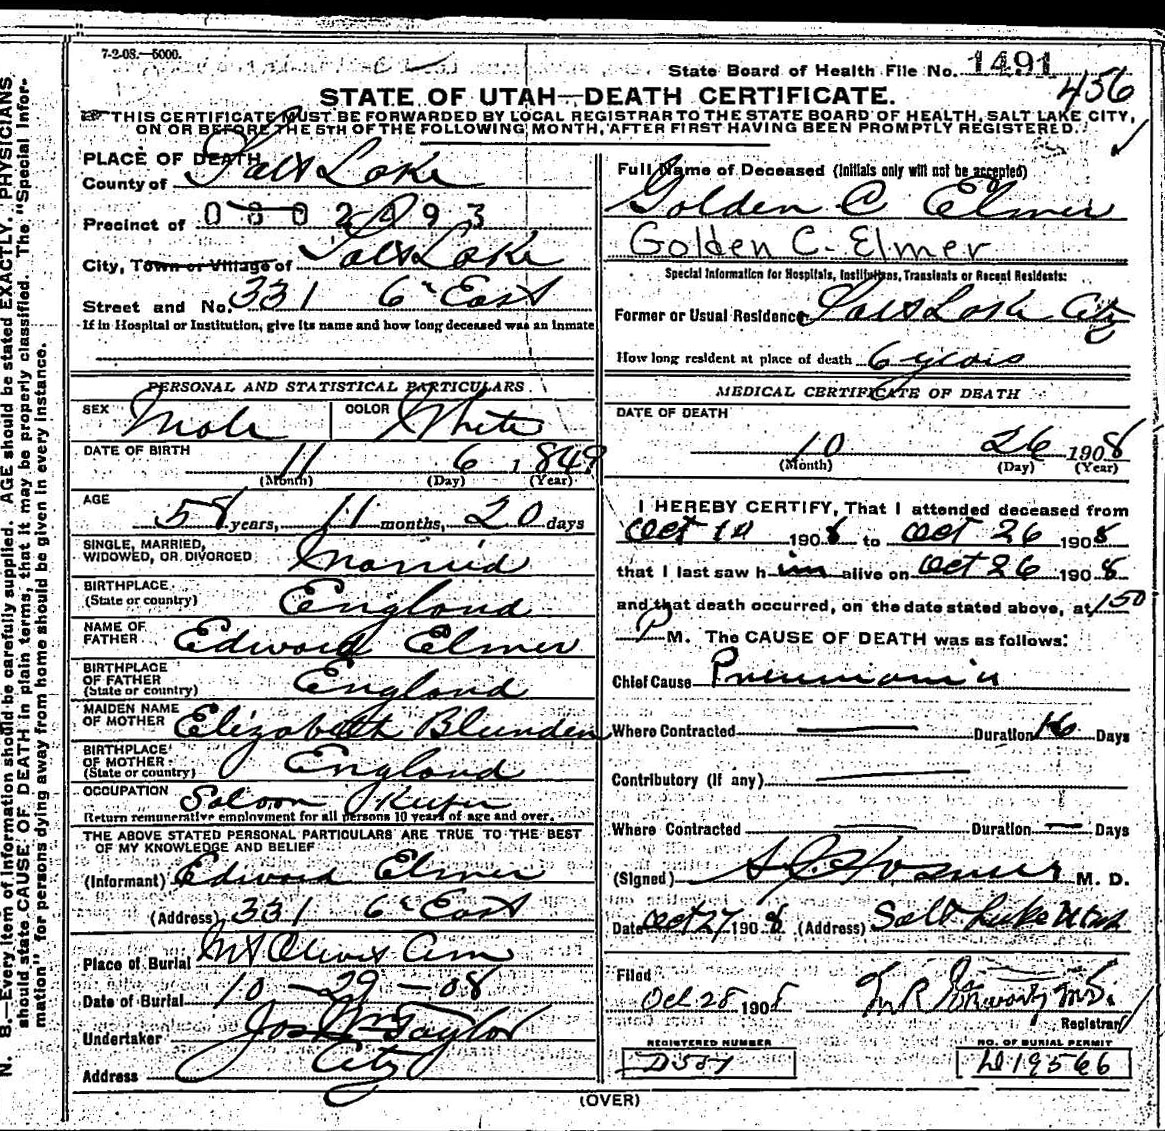 7-2-08.—5000.
State Board of Health File No. 1491
456
STATE OF UTAH—DEATH CERTIFICATE.
THIS CERTIFICATE MUST BE FORWARDED BY LOCAL REGISTRAR TO THE STATE BOARD OF HEALTH, SALT LAKE CITY,
ON OR BEFORE THE 5TH OF THE FOLLOWING MONTH, AFTER FIRST HAVING BEEN PROMPTLY REGISTERED.
PLACE OF DEATH
County of Salt Lake
Precinct of
City, Town or Village of Salt Lake
Street and No. 331 6" East
If in Hospital or Institution, give its name and how long deceased was an inmate
PERSONAL AND STATISTICAL PARTICULARS.
SEX Male COLOR White
DATE OF BIRTH
11 6, 1849
(Month) (Day) (Year)
AGE
58 years, 11 months, 20 days
SINGLE, MARRIED,
WIDOWED, OR DIVORCED Married
BIRTHPLACE
(State or country) England
NAME OF
FATHER Edward Elmer
BIRTHPLACE
OF FATHER
(State or country) England
MAIDEN NAME
OF MOTHER Elizabeth Blunden
BIRTHPLACE
OF MOTHER
(State or country) England
OCCUPATION Saloon Keeper
Return remunerative employment for all persons 10 years of age and over.
THE ABOVE STATED PERSONAL PARTICULARS ARE TRUE TO THE BEST
OF MY KNOWLEDGE AND BELIEF
(Informant) Edward Elmer
(Address) 331 6" East
Place of Burial Mt Olivet Cem
Date of Burial 10 — 29 — 08
Undertaker Jos Wm Taylor
Address City
Full Name of Deceased (Initials only will not be accepted)
Golden C Elmer
Golden C. Elmer
Special Information for Hospitals, Institutions, Transients or Recent Residents:
Former or Usual Residence Salt Lake City
How long resident at place of death 6 years
MEDICAL CERTIFICATE OF DEATH
DATE OF DEATH
10 26 1908
(Month) (Day) (Year)
I HEREBY CERTIFY, That I attended deceased from
Oct 10 1908 to Oct 26 1908
that I last saw him alive on Oct 26 1908
and that death occurred, on the date stated above, at 150
P M. The CAUSE OF DEATH was as follows:
Chief Cause Pneumonia
Where Contracted Duration 16 Days
Contributory (If any)
Where Contracted Duration — Days
(Signed) M. D.
Date Oct 27 1908 (Address) Salt Lake Utah
Filed
Oct 28 1908 M.D.
Registrar
REGISTERED NUMBER
D557
NO. OF BURIAL PERMIT
19566
(OVER)
N. B.—Every item of information should be carefully supplied. AGE should be stated EXACTLY. PHYSICIANS
should state CAUSE OF DEATH in plain terms, that it may be properly classified. The "Special Infor-
mation" for persons dying away from home should be given in every instance.